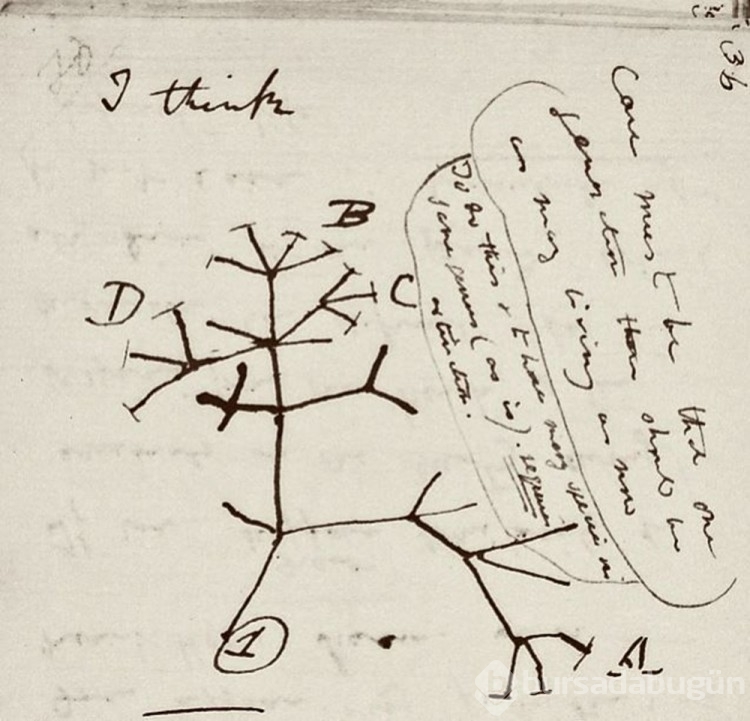 36
I think
Case must be that one
generation then should be
as many living as now
To do this & to have many species in
same genus (as is). requires
extinction.
B
C
D
A
1
bursadabugün